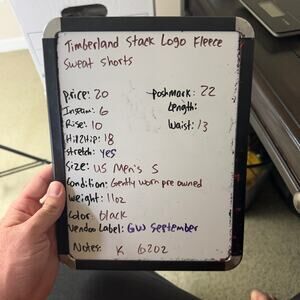 Timberland Stack Logo Fleece
Sweat shorts
Price: 20
Poshmark: 22
Inseam: 6
Length:
Rise: 10
Waist: 13
Hip2Hip: 18
Stretch: yes
Size: US Men's S
Condition: Gently worn pre owned
Weight: 11oz
Color: black
Vendoo Label: GW September
Notes: K 6202